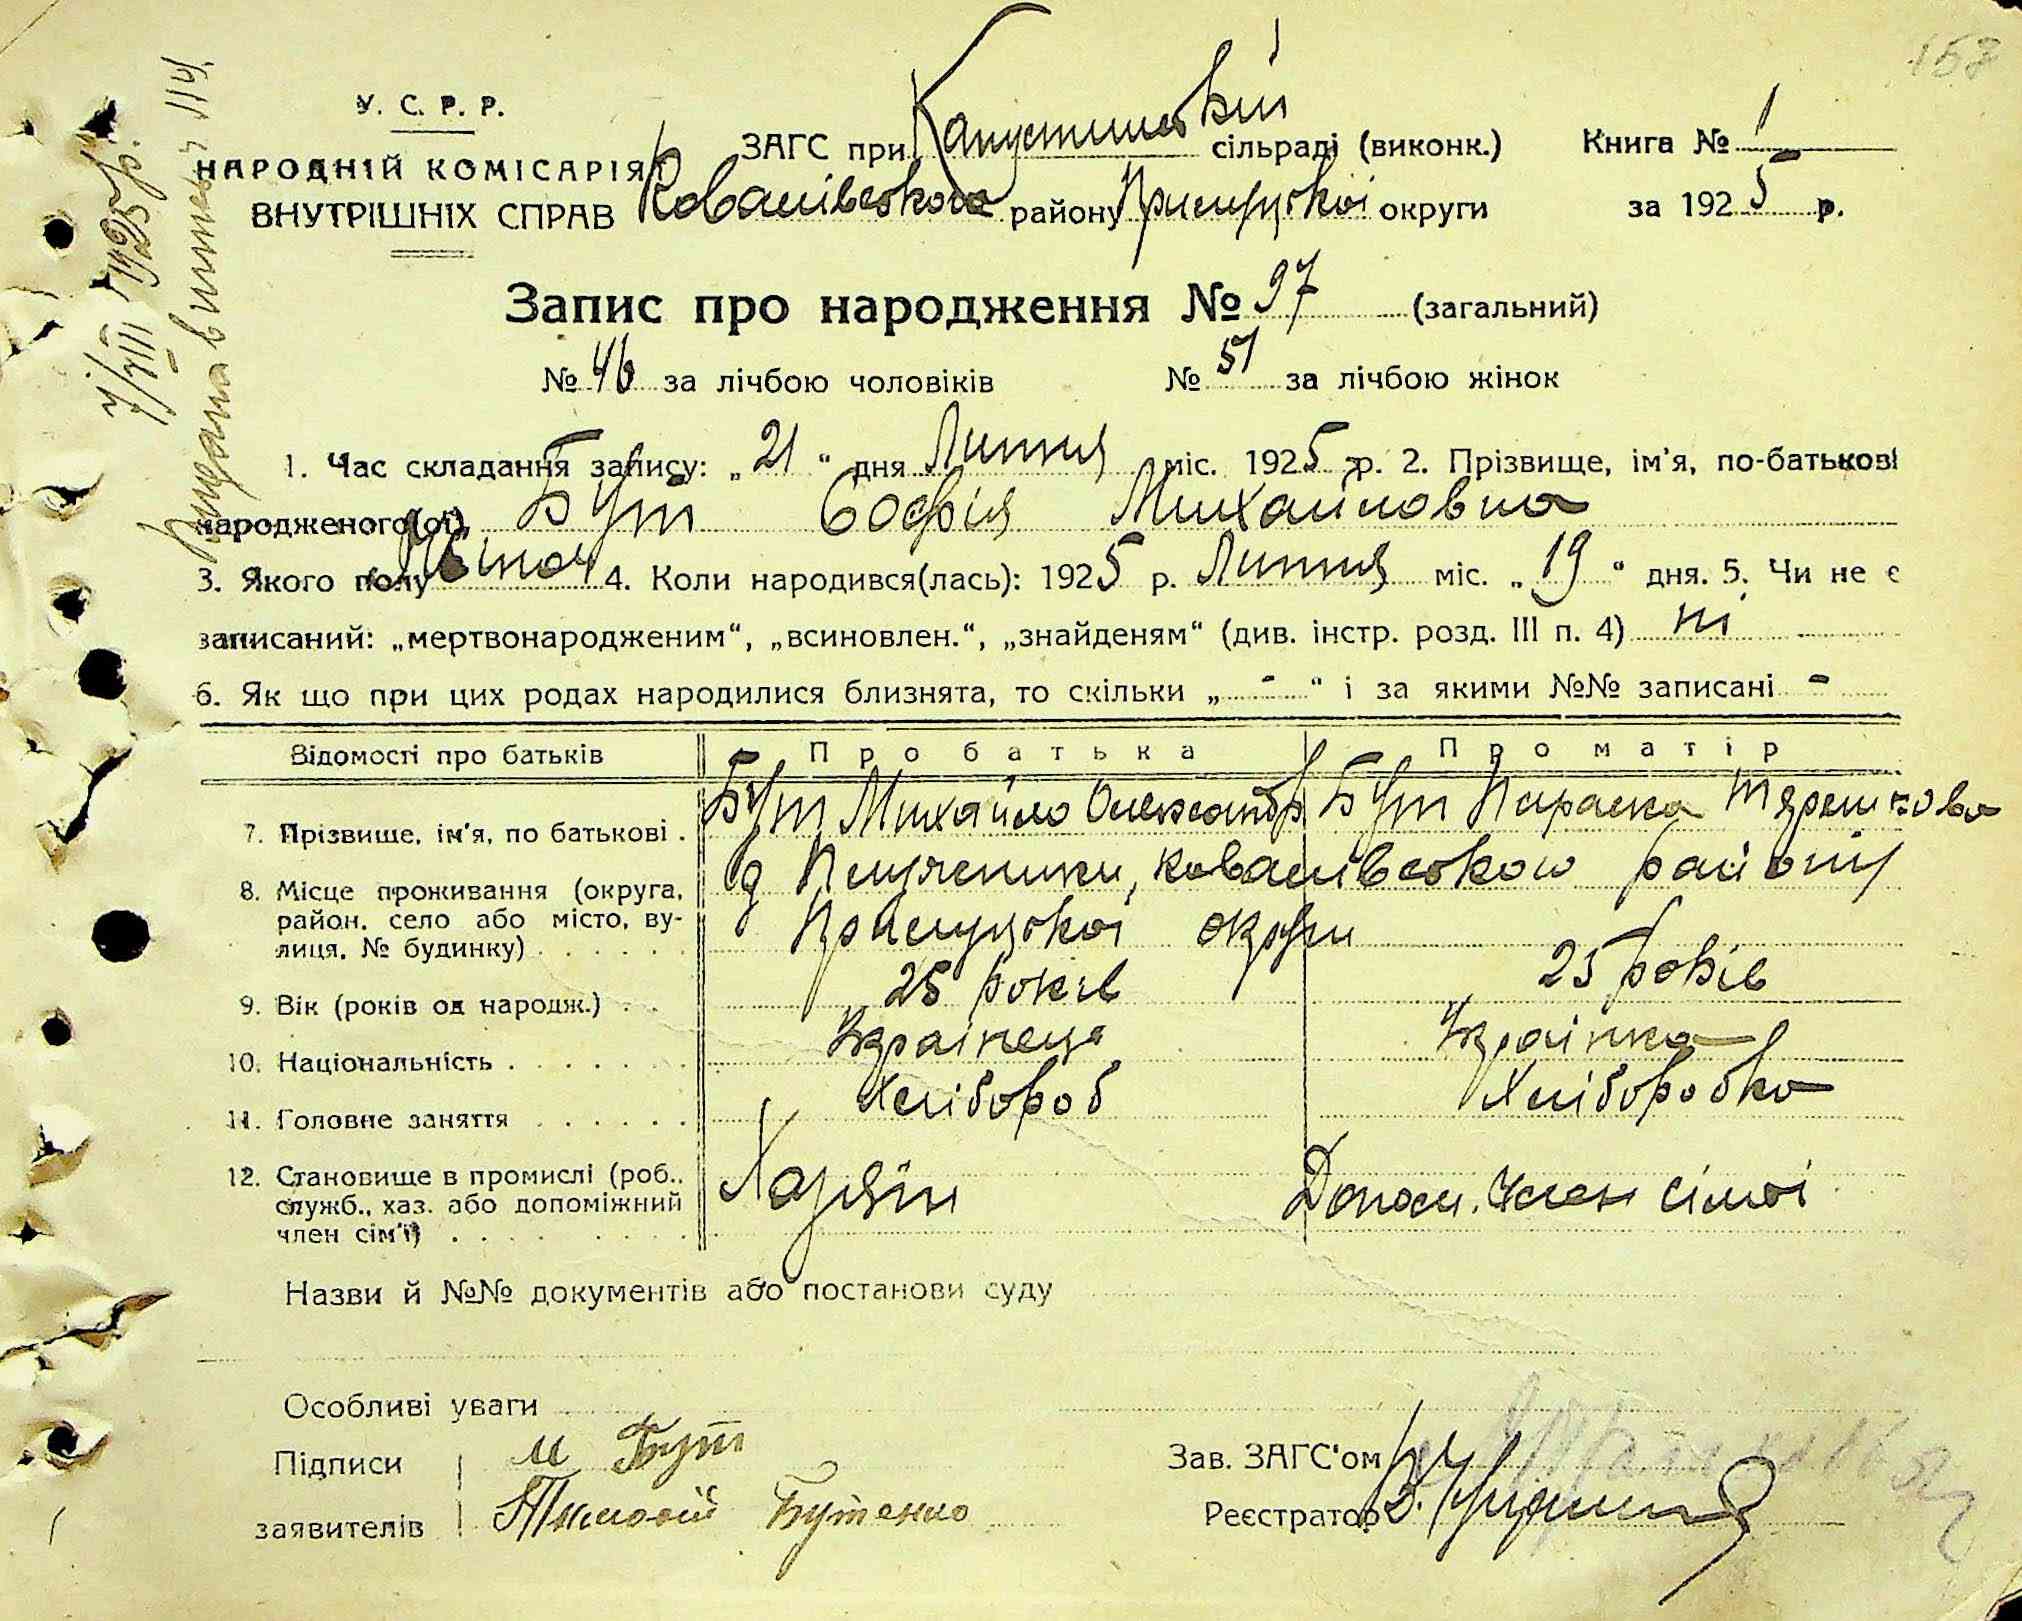 157
У. С. Р. Р.
НАРОДНІЙ КОМІСАРІЯТ
ВНУТРІШНІХ СПРАВ
ЗАГС при Капустинській сільраді (виконк.)
Ковалівського району Прилуцької округи
Книга № 1
за 1925 р.
Запис про народження № 97 (загальний)
№ 46 за лічбою чоловіків № 51 за лічбою жінок
1. Час складання запису: „21“ дня Липня міс. 1925 р. 2. Прізвище, ім'я, по-батькові
народженого(ої) Бут Софія Михайловна
3. Якого полу Жіноч 4. Коли народився(лась): 1925 р. Липня міс. „19“ дня. 5. Чи не є
записаний: „мертвонародженим“, „всиновлен.“, „знайденям“ (див. інстр. розд. III п. 4) ні
6. Як що при цих родах народилися близнята, то скільки „ - “ і за якими №№ записані -
Відомості про батьків Про батька Про матір
7. Прізвище, ім'я, по батькові . Бут Михайло Олександр Бут Параска Терешкова
8. Місце проживання (округа, район. село або місто, вулиця, № будинку) Ковалівського району
Прилуцької округи
9. Вік (років од народж.) . . 25 років 25 років
10. Національність . . . . . . . Українець Українка
11. Головне заняття . . . . . . Хлібороб Хліборобка
12. Становище в промислі (роб., служб., хаз. або допоміжний член сім'ї) Хазяїн Допом. Член сімьї
Назви й №№ документів або постанови суду
Особливі уваги
Підписи М Бут
заявителів Тимофій Бутенко
Зав. ЗАГС'ом
Реєстратор
7/VIII 1925 р.
Видана випись ч 114.